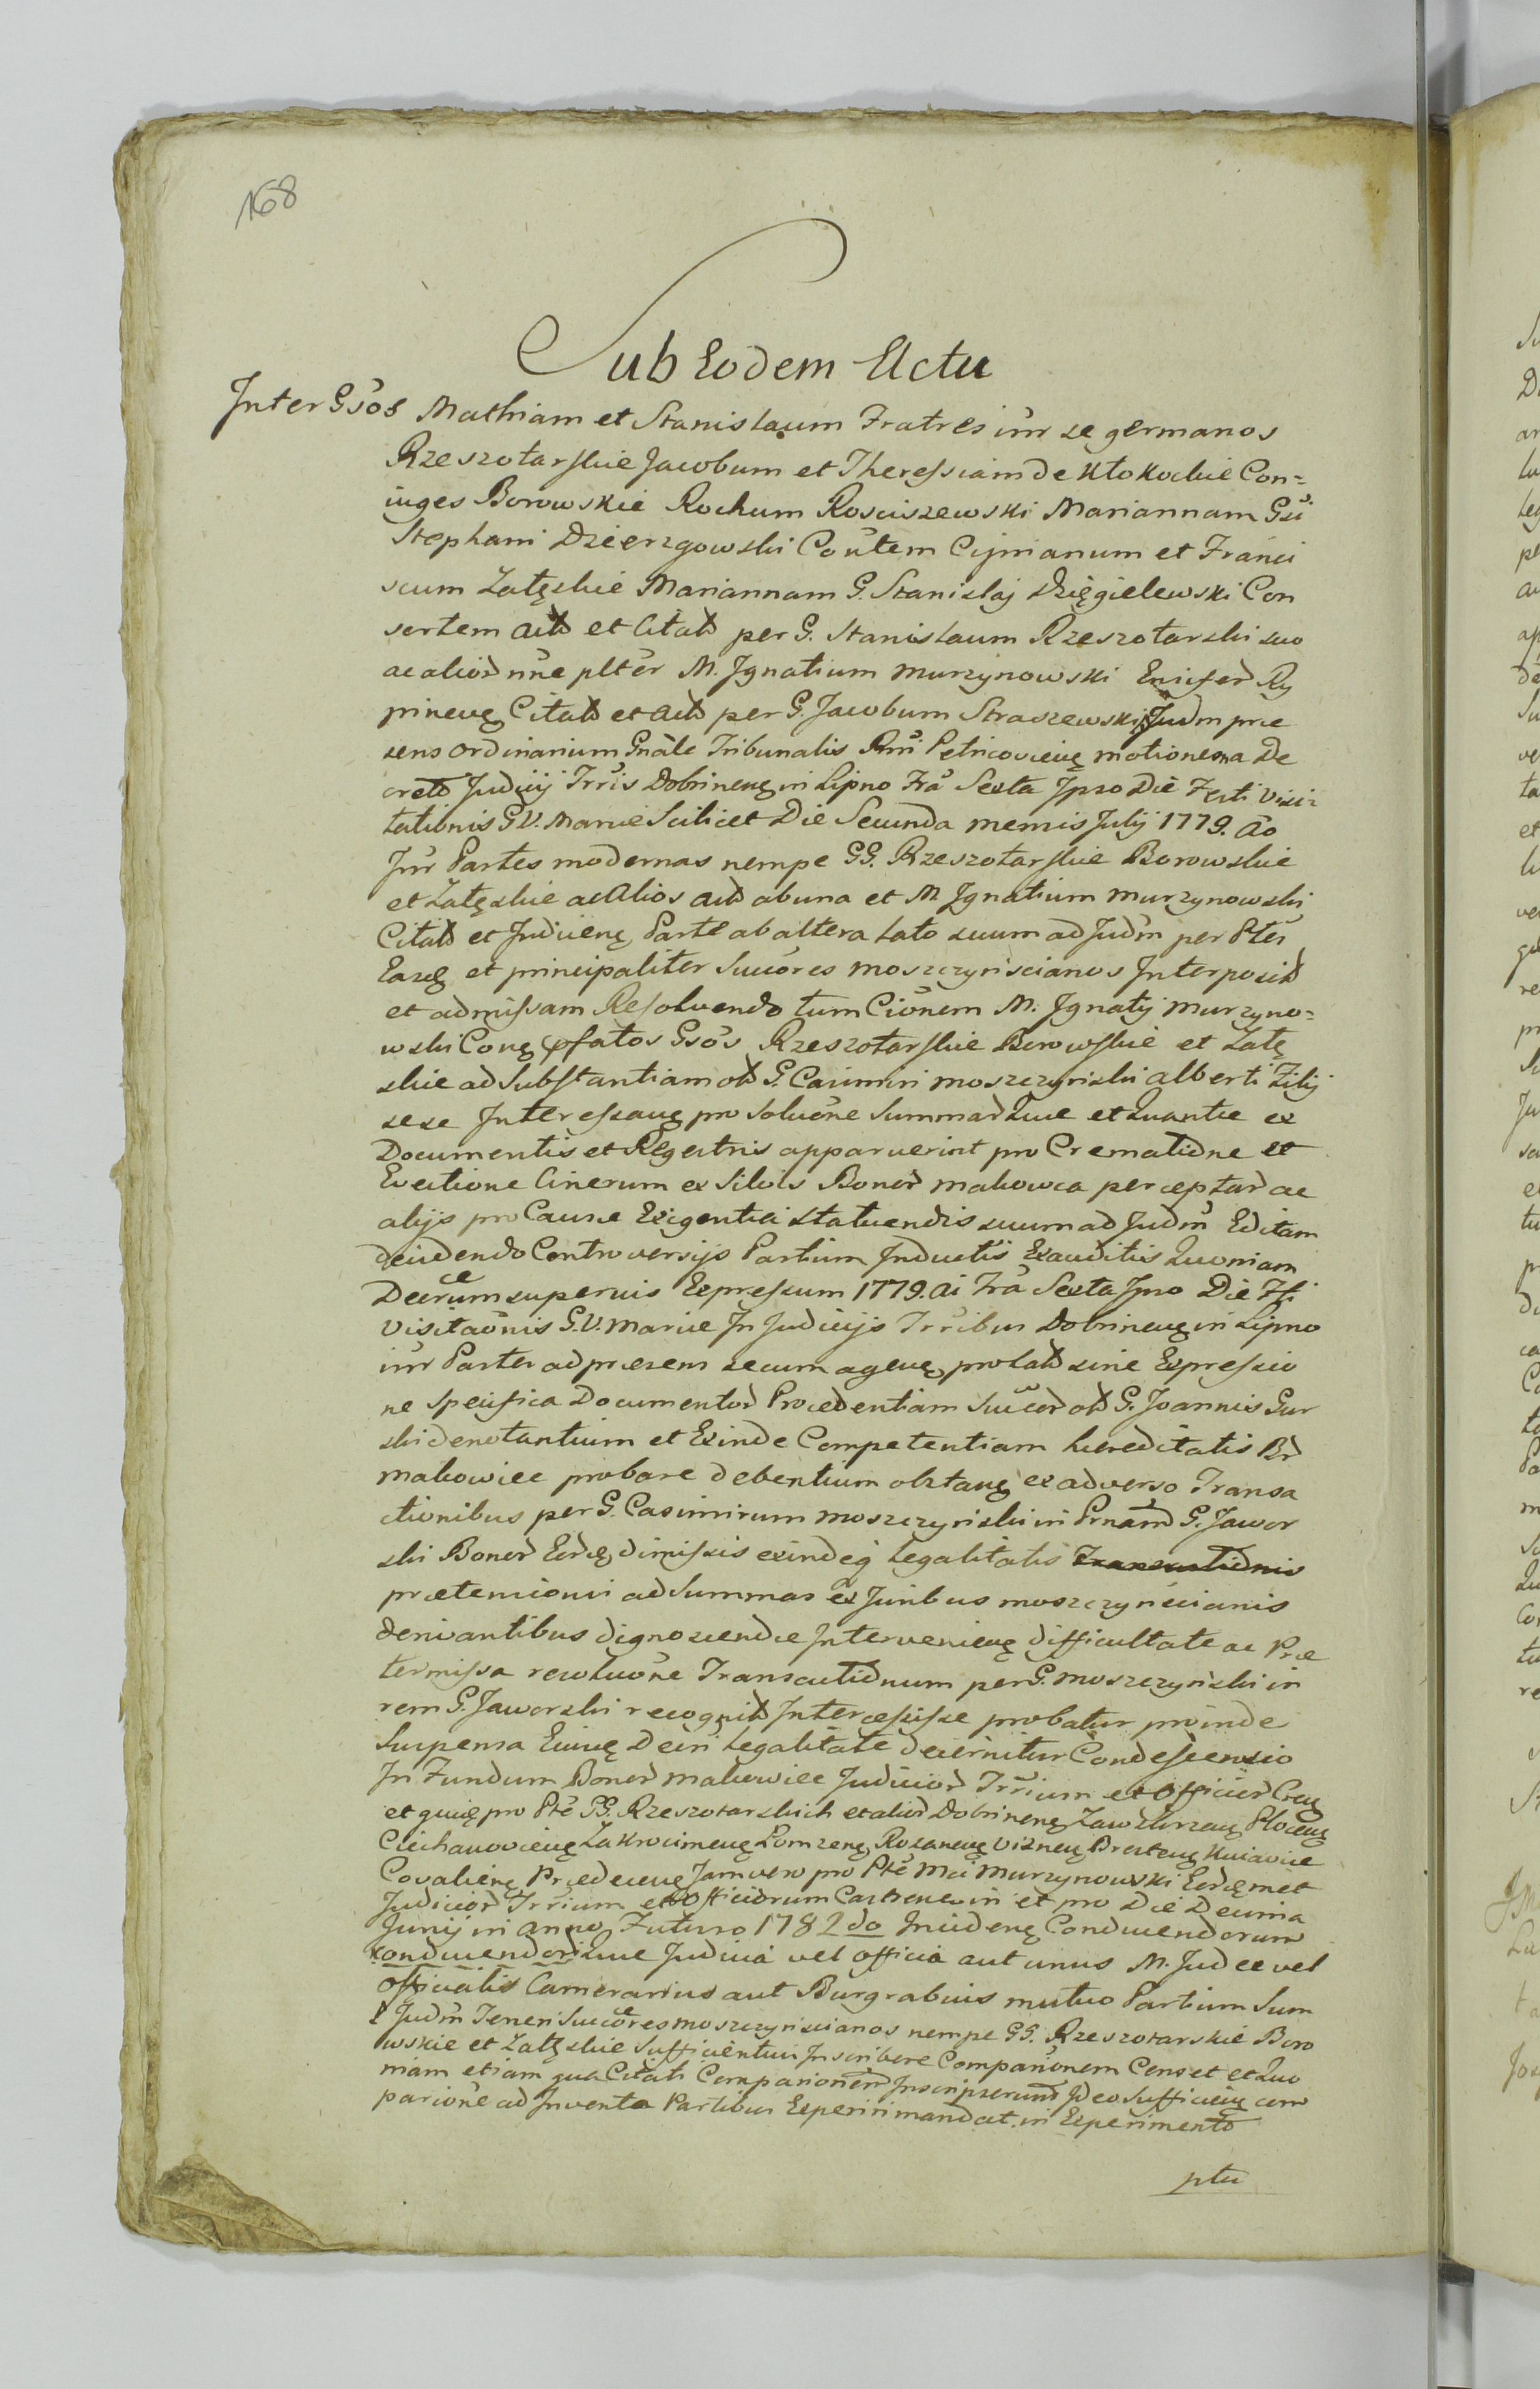 168
Sub Eodem Actu
Inter Gsos Mathiam et Stanislaum Fratres inr se germanos
Rzeszotarskie Jacobum et Theressiam de Kłokockie Con=
iuges Borowskie Rochum Rosciszewski Mariannam Gsi
Stephani Dzierzgowski Coñtem Cyprianum et Franci
scum Załęskie Mariannam G. Stanislaj Dzięgielewski Con
sortem actt et Citatt per G. Stanislaum Rzeszotarski suo
ac alior nñe plter M. Ignatium Murzynowski Ensifer Ry
pinen Citatt et actt per G. Jacobum Straszewski Judm prae
sens ordinarium Gnale Tribunalis Rni Petricovien motione a De
creto Judicij Trris Dobrinen in Lipno Fra Sexta Ipso Die Festi Visi=
tationis G.V. Mariae Scilicet Die Secunda mensis Julij 1779. ao
Inr Partes modernas nempe GG. Rzeszotarskie Borowskie
et Załęskie ac Alios actt ab una et M. Ignatium Murzynowski
Citatt et Judicien Parte ab altera lato suum ad Judm per Ptes
Easd et principaliter Succores Moszczynscianos Interposit
et admissam Resolvendo tum Cionem M. Ignatij Murzyno=
wski Con pfatos Gsos Rzeszotarskie Borowskie et Załę
skie ad Substantiam ol G. Casimiri Moszczynski alberti Filij
sese Interessan pro Solutione Summar Quae et Quantae ex
Documentis et Regestris apparuerint pro Crematione et
Evectione Cinerum ex Silvis Bonor Makowca perceptar ac
alijs pro Causae Exigentia statuendis suum ad Judm Editam
decidendo Controversijs Partium Inductis Exauditis Quoniam
Decrum superius Expressum 1779. ai Fra Sexta Ipso Die Fti
Visitaõnis G.V. Mariae In Judicijs Trribus Dobrinen in Lipno
inr Partes ad praesens secum agen prolatt sine Expressio
ne Specifica Documentor Procedentiam Succor ol G. Joannis Gur
ski denotantium et Exinde Competentiam haereditatis Br
Makowiec probare debentium obstan ex adverso Transa
ctionibus per G. Casimirum Moszczynski in Prnam G. Jawor
ski Bonor Eord dimissis exindeq Legalitatis Transactionis
praetensioni ad Summas ex Juribus Moszczynscianis
derivantibus dignoscendae Intervenien difficultate ac Prae
termissa resolutione Transactionum per G. Moszczynski in
rem G. Jaworski recognitt Intercessisse probatur proinde
Suspensa Eiusd Decri Legalitate decernitur Condescensio
In Fundum Bonor Makowiec Judicior Trrium et Officior Cren
et quid pro Pte GG. Rzeszotarskich et alior Dobrinen Zawskrzen Plocen
Ciechanovien Zakrocimen Lomzen Rozanen Visnen Bresten Kuiaviae
Covalien Praedecen Jam vero pro Pte Mci Murzynowski Eordmet
Judicior Trrium et Officiorum Castrenc in et pro Die Decima
Junij in anno Futuro 1782do Inciden Conducendorum
conducendor Quae Judicia vel officia aut unus M. Judex vel
Officialis Camerarius aut Burgrabius mutuo Partium Sum
p Judm Teneri Succores Moszczynscianos nempe GG. Rzeszotarskie Boro
wskie et Załęskie Sufficientur Inscribere Comparionem Censet et Quo
niam etiam qua Citati Comparionem Inscripserunt Ideo Sufficien com
parione ad Inventa Partibus Experiri mandat in Experimento
ptu